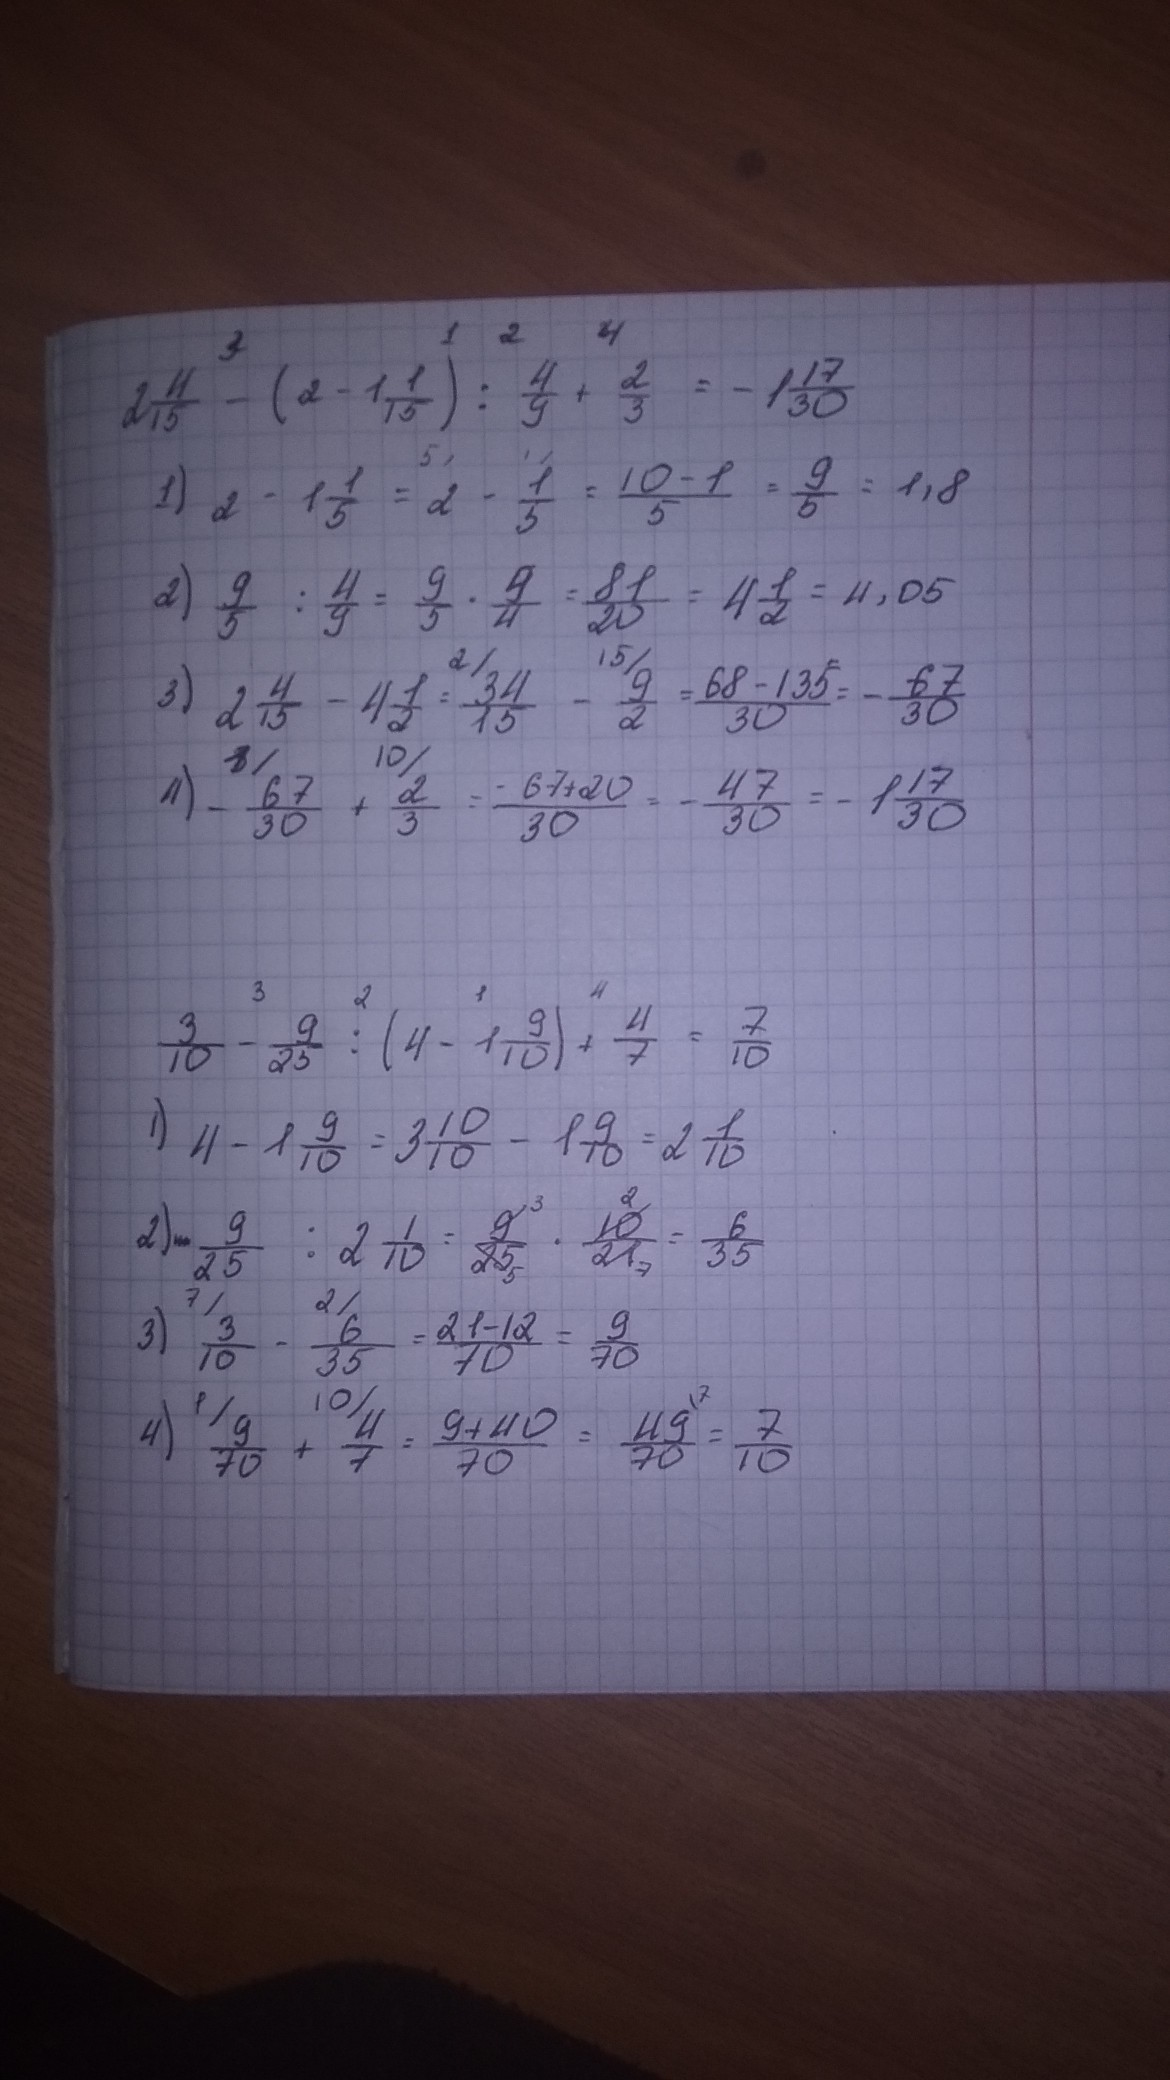 3 1 2 4
2 4/15 - (2 - 1 1/15) : 4/9 + 2/3 = - 1 17/30
1) 2 - 1 1/5 = 5/ 2 - 1/ 1/5 = 10-1/5 = 9/5 = 1,8
2) 9/5 : 4/9 = 9/5 · 9/4 = 81/20 = 4 1/2 = 4,05
3) 2 4/15 - 4 1/2 = 2/ 34/15 - 15/ 9/2 = 68-135/30 = - 67/30
4) - 1/ 67/30 + 10/ 2/3 = -67+20/30 = - 47/30 = - 1 17/30
3 2 1 4
3/10 - 9/25 : (4 - 1 9/10) + 4/7 = 7/10
1) 4 - 1 9/10 = 3 10/10 - 1 9/10 = 2 1/10
2) 9/25 : 2 1/10 = 9 3/25 5 · 10 2/21 7 = 6/35
3) 7/ 3/10 - 2/ 6/35 = 21-12/70 = 9/70
4) 1/ 9/70 + 10/ 4/7 = 9+40/70 = 49\7/70 = 7/10